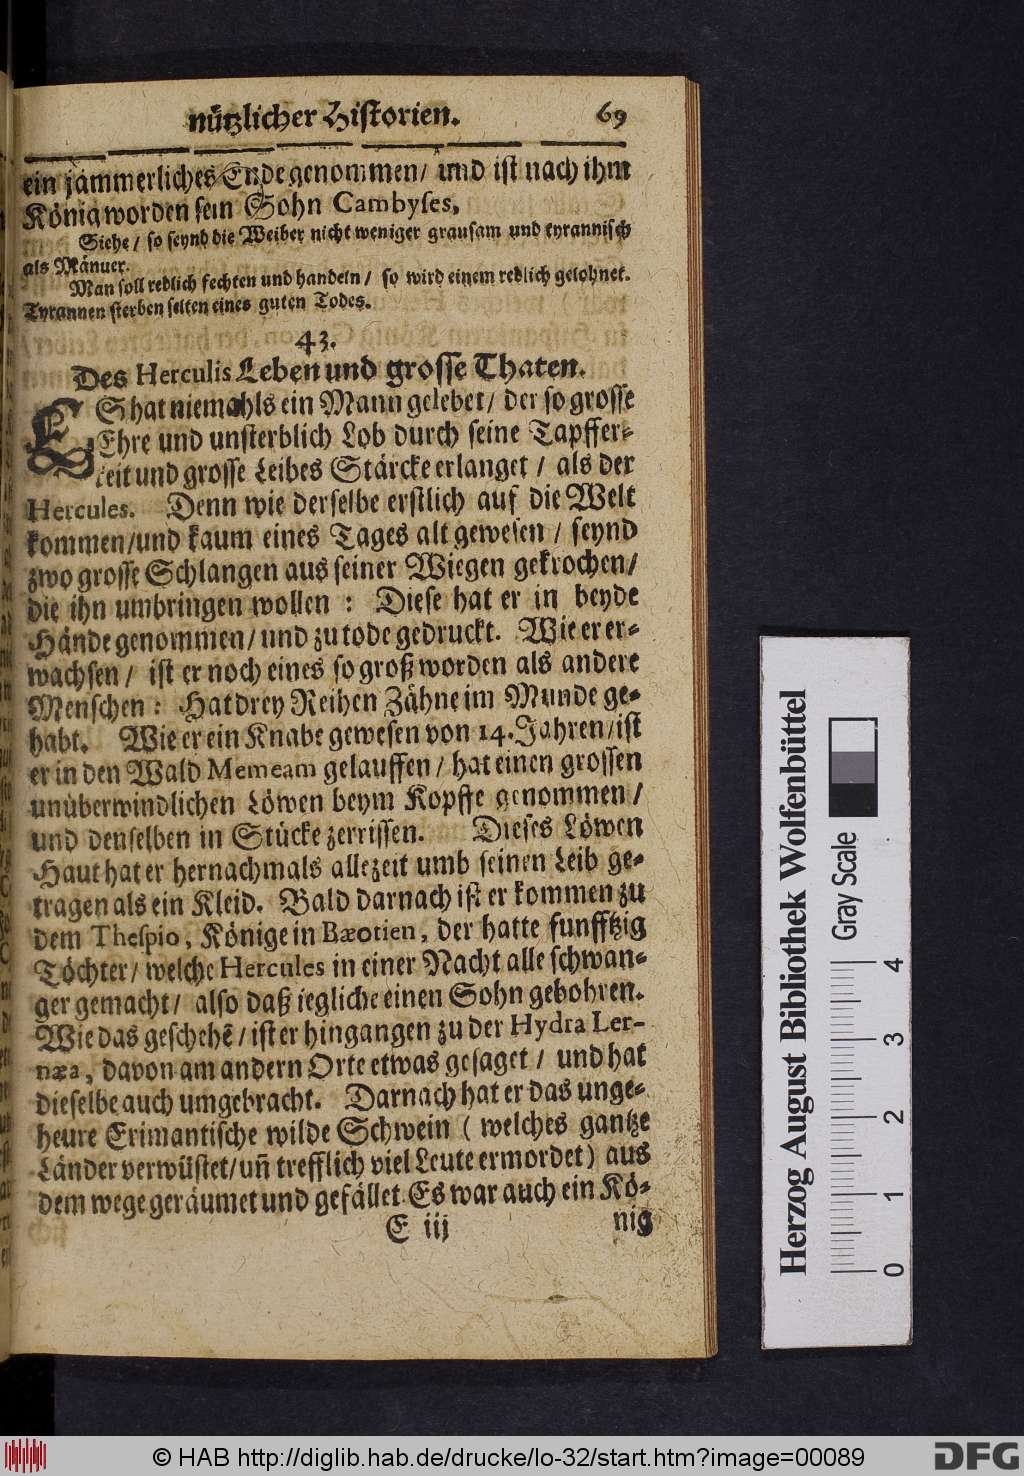 nützlicher Historien. 69
ein jämmerliches Ende genommen/ und ist nach ihm
König worden sein Sohn Cambyses.
Siehe/ so seynd die Weiber nicht weniger grausam und tyrannisch
als Mänuer.
Man soll redlich fechten und handeln/ so wird einem redlich gelohnet.
Tyrannen sterben selten eines guten Todes.
43.
Des Herculis Leben und grosse Thaten.
ES hat niemahls ein Mann gelebet/ der so grosse
Ehre und unsterblich Lob durch seine Tapffer-
keit und grosse Leibes Stärcke erlanget/ als der
Hercules. Denn wie derselbe erstlich auf die Welt
kommen/und kaum eines Tages alt gewesen/ seynd
zwo grosse Schlangen aus seiner Wiegen gekrochen/
die ihn umbringen wollen: Diese hat er in beyde
Hände genommen/ und zu tode gedruckt. Wie er er-
wachsen/ ist er noch eines so groß worden als andere
Menschen: Hat drey Reihen Zähne im Munde ge-
habt. Wie er ein Knabe gewesen von 14. Jahren/ist
er in den Wald Memeam gelauffen/ hat einen grossen
unüberwindlichen Löwen beym Kopffe genommen/
und denselben in Stücke zerrissen. Dieses Löwen
Haut hat er hernachmals allezeit umb seinen Leib ge-
tragen als ein Kleid. Bald darnach ist er kommen zu
dem Thespio, Könige in Bæotien, der hatte funfftzig
Töchter/ welche Hercules in einer Nacht alle schwan-
ger gemacht/ also daß iegliche einen Sohn gebohren.
Wie das geschehẽ/ ist er hingangen zu der Hydra Ler-
næa, davon am andern Orte etwas gesaget/ und hat
dieselbe auch umgebracht. Darnach hat er das unge-
heure Erimantische wilde Schwein (welches gantze
Länder verwüstet/uñ trefflich viel Leute ermordet) aus
dem wege geräumet und gefället. Es war auch ein Kö-
E iij nig
Herzog August Bibliothek Wolfenbüttel
Gray Scale
0 1 2 3 4
© HAB http://diglib.hab.de/drucke/lo-32/start.htm?image=00089
DFG